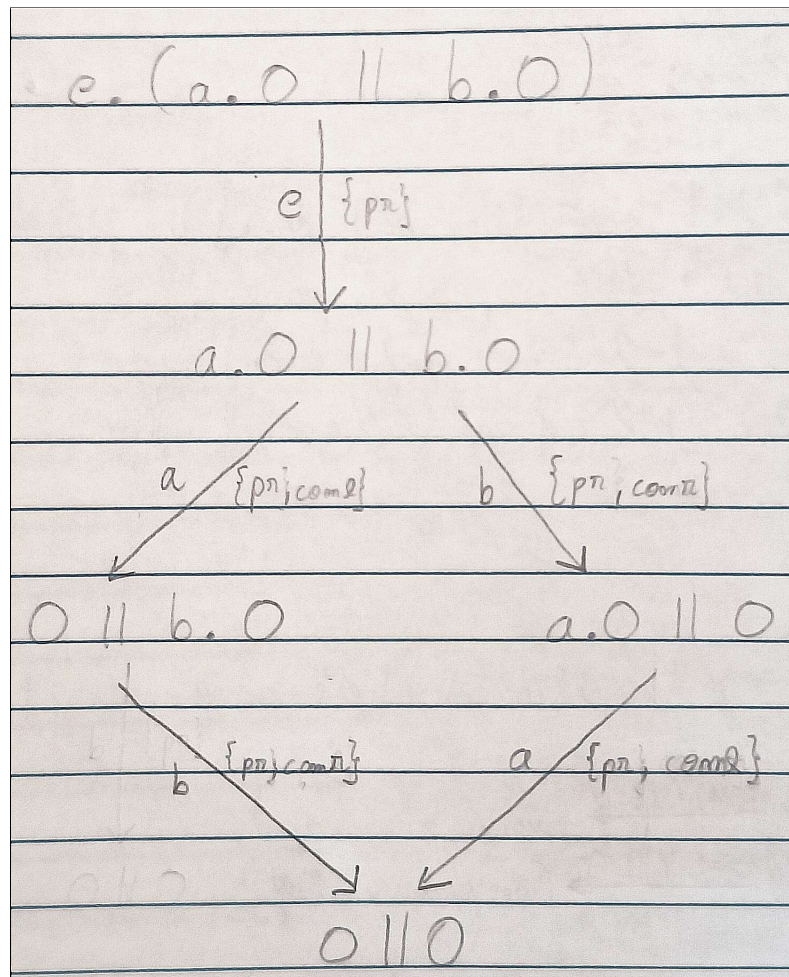 e. (a. 0 || b. 0)
e {pr}
a. 0 || b. 0
a {pr, coml} b {pr, comr}
0 || b. 0 a. 0 || 0
b {pr, comr} a {pr, coml}
0 || 0